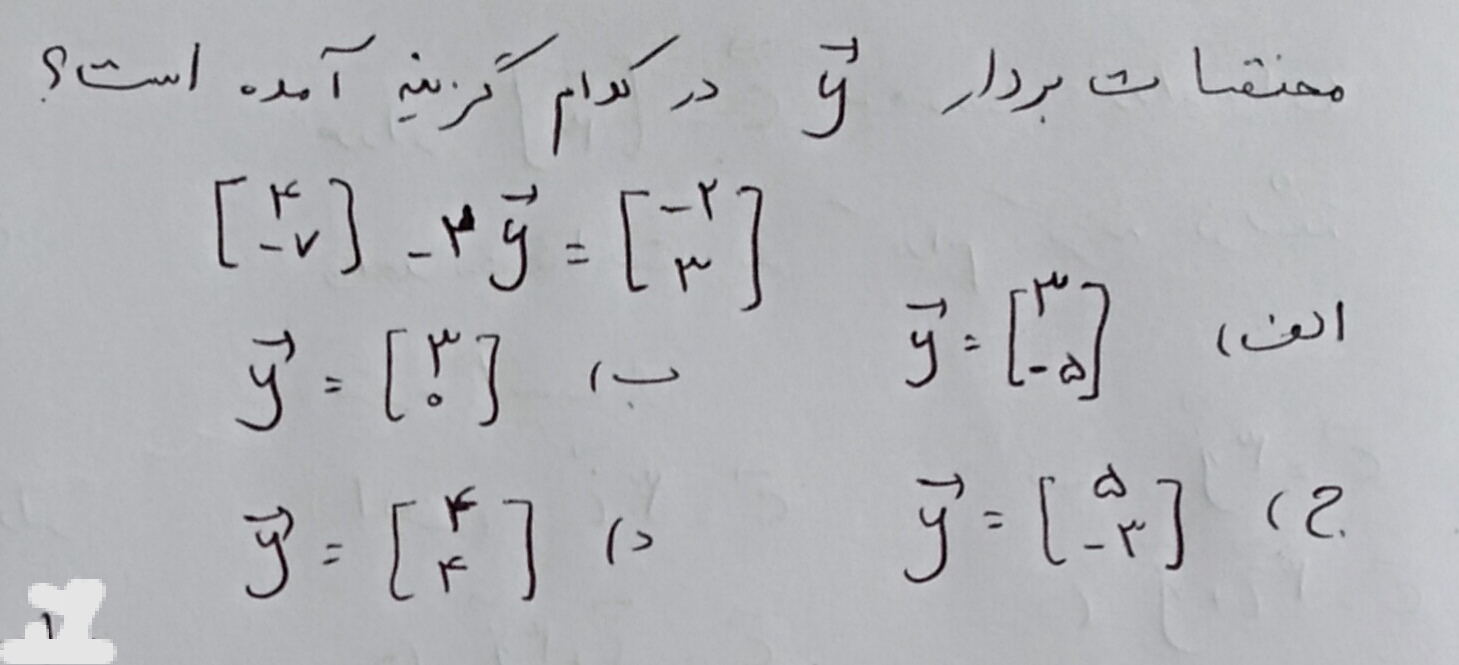 مختصات بردار y⃗ در کدام گزینه آمده است؟
[۴ -۷] - ۲y⃗ = [-۲ ۳]
الف) y⃗ = [۳ -۵]
ب) y⃗ = [۳ ۰]
ج) y⃗ = [۵ -۳]
د) y⃗ = [۴ ۴]